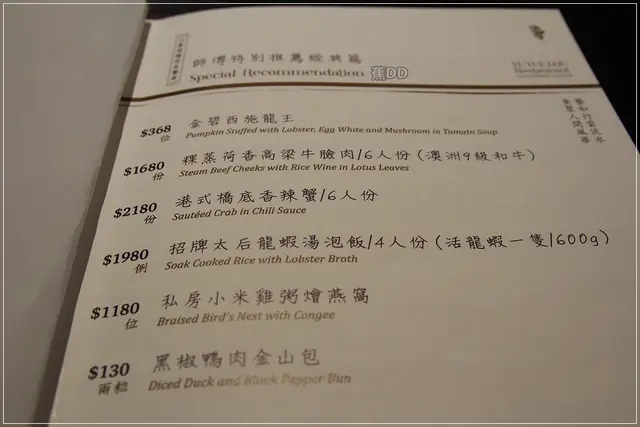 師傅特別推薦經典篇
Special Recommendation
蕉DD
YU YUE LOU
Restaurant
藝如行雲流水
食聖人間風華
$368 金碧西施龍王
位 Pumpkin Stuffed with Lobster, Egg White and Mushroom in Tomato Soup
$1680 粿蒸荷香高梁牛臉肉/6人份 (澳洲9級和牛)
份 Steam Beef Cheeks with Rice Wine in Lotus Leaves
$2180 港式橋底香辣蟹/6人份
份 Sautéed Crab in Chili Sauce
$1980 招牌太后龍蝦湯泡飯/4人份 (活龍蝦一隻/600g)
例 Soak Cooked Rice with Lobster Broth
$1180 私房小米雞粥燴燕窩
位 Braised Bird's Nest with Congee
$130 黑椒鴨肉金山包
兩粒 Diced Duck and Black Pepper Bun